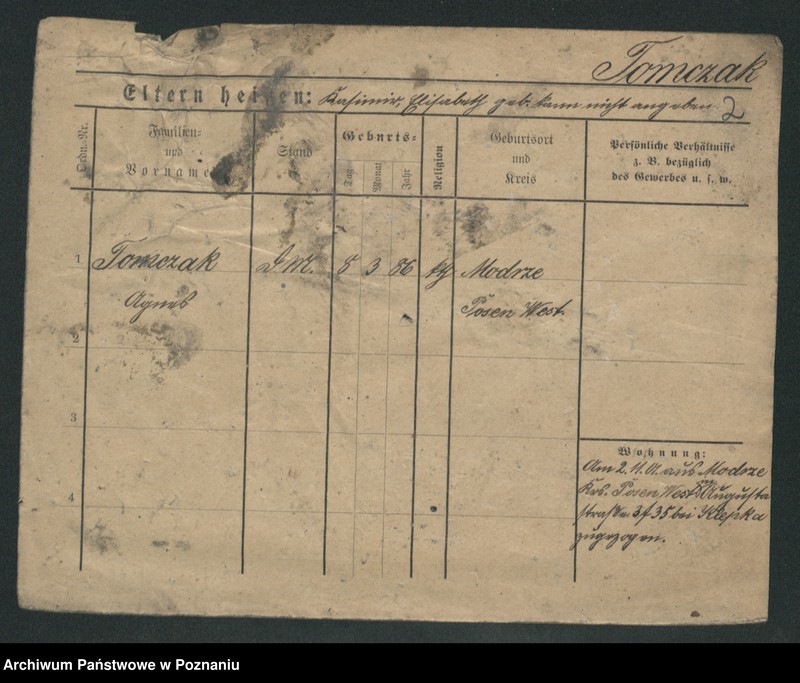 Tomczak
Eltern heißen: Kasimir, Elisabeth geb. kann nicht angeben. 2
Ordn.-Nr.
Familien-
und
Vorname
Stand
Geburts-
Tag
Monat
Jahr
Religion
Geburtsort
und
Kreis
Persönliche Verhältnisse
z. B. bezüglich
des Gewerbes u. s. w.
1 Tomczak 8 3 86 Modrze
Agnes Posen West.
2
3
4
Wohnung:
Am 2. 11. 01. aus Modrze
Krs. Posen West Augusta
straße 35 bei Klepka
zugezogen.
Archiwum Państwowe w Poznaniu